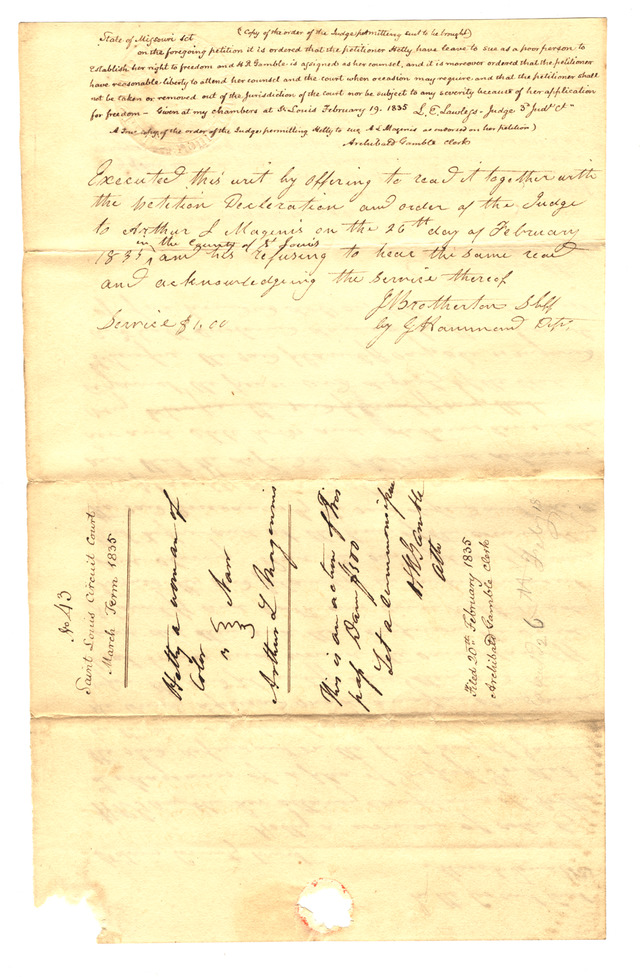 (Copy of the order of the Judge permitting suit to be brought)
State of Missouri Sct
on the foregoing petition it is ordered that the petitioner Hetty have leave to sue as a poor person to
Establish her right to freedom and H R Gamble is assigned as her counsel, and it is moreover ordered that the petitioner
have reasonable liberty to attend her counsel and the court when occasion may require and that the petitioner shall
not be taken or removed out of the Jurisdiction of the court nor be subject to any severity because of her application
for freedom - Given at my chambers at St Louis February 19. 1835 L. E. Lawless - Judge 3d Judl Ct -
A True copy of the order of the Judge permitting Hetty to sue A L Magenis as endorsed on her petition)
Archibald Gamble Clerk
Executed this writ by offering to read it together with
the petition Declaration and order of the Judge
to Arthur L Magenis on the 26th day of February
in the County of St Louis
1835 and his refusing to hear the same read
and acknowledging the service thereof
J Brotherton Shff
Service $1,00 by G Hammond Dpt.
No 43
Saint Louis Circuit Court
March Term 1835
Hetty a woman of
Color
vs Narr
Arthur L Magennis
This is an action of tres
pass Dam $500
Let a summons issue
H R Gamble
Atty
Filed 20th February 1835
Archibald Gamble Clerk
26 Feb 18